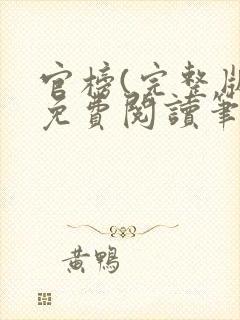 官榜(完整版
免費閱讀筆
黃鴨